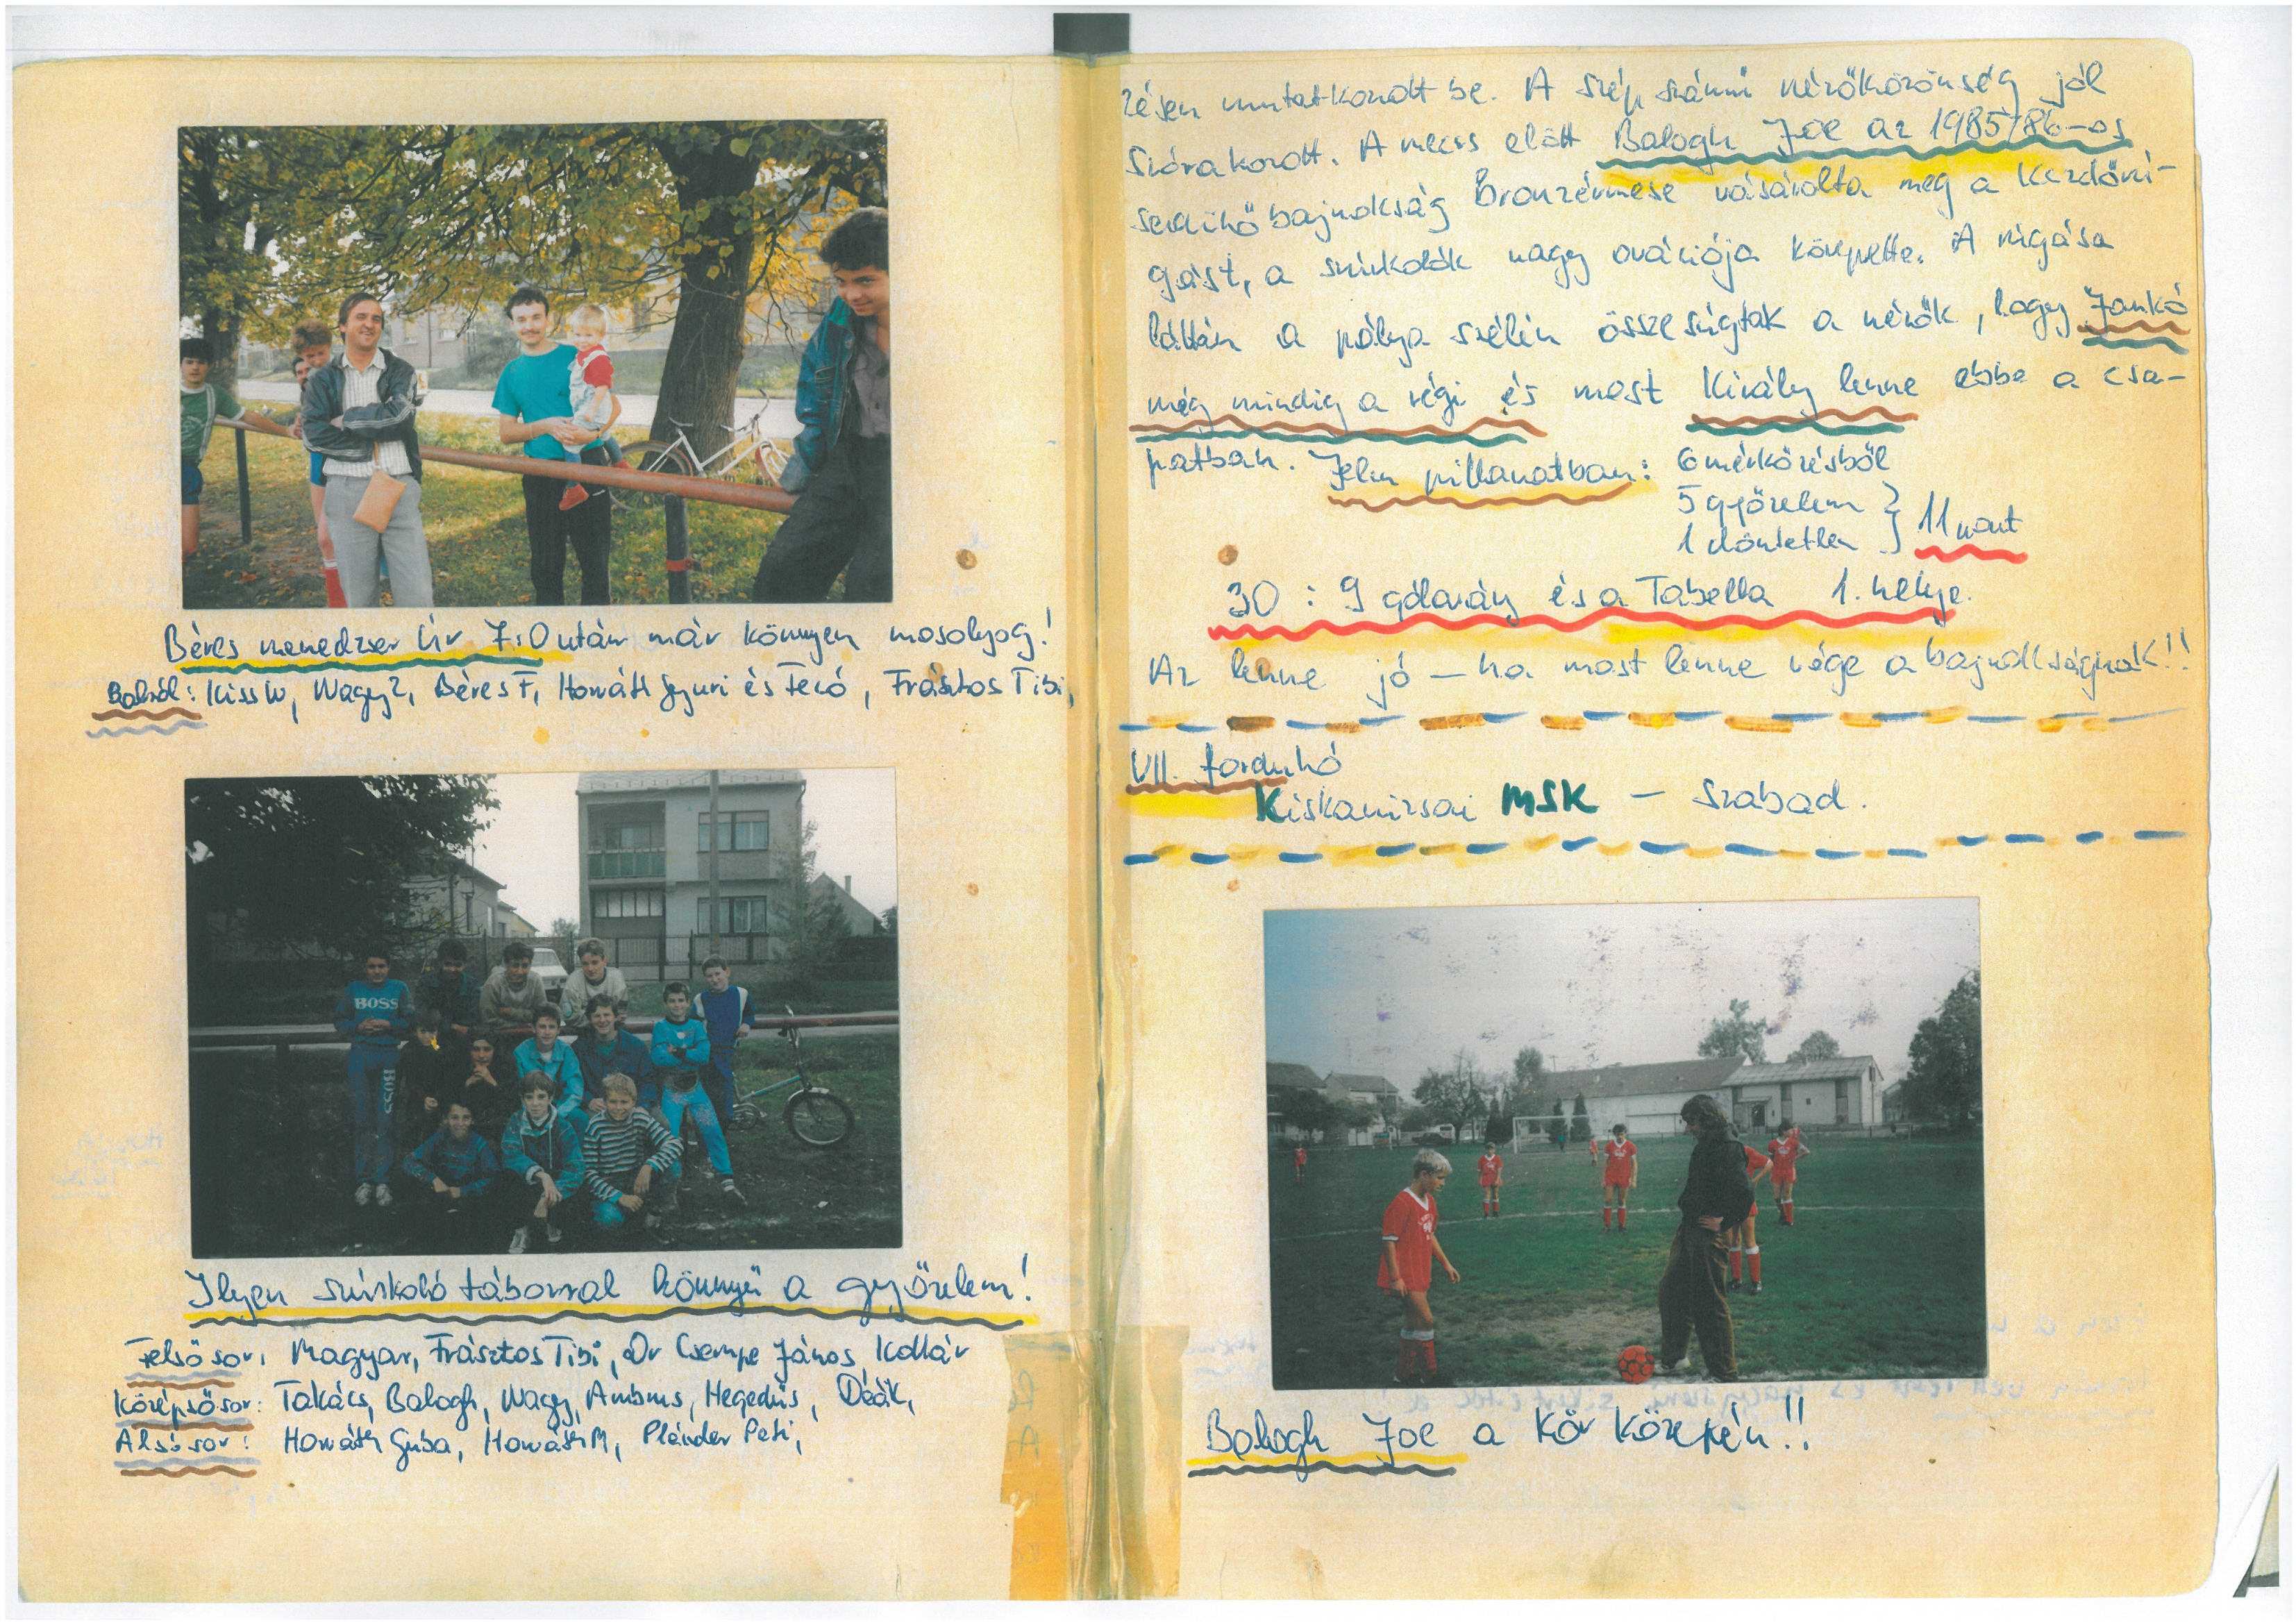 Béres menedzser Úr 7:0 után már könnyen mosolyog!
Balról: Kiss W, Nagy Z, Béres F, Horváth Gyuri és Fecó, Frásztos Tibi,
BOSS
BOSS
Ilyen szurkoló táborral könnyű a győzelem!
Felső sor: Magyar, Frásztos Tibi, Dr Csempe János, Kollár
Középső sor: Takács, Balogh, Nagy, Ambrus, Hegedűs, Deák,
Alsó sor: Horváth Guba, Horváth M, Plánder Peti,
zésen mutatkozott be. A szép számú nézőközönség jól
szórakozott. A meccs előtt Balogh Joe az 1985/86-os
serdülő bajnokság Bronzérmese vásárolta meg a kezdőrú-
gást, a szurkolók nagy ovációja közepette. A rúgása
láttán a pálya szélén összesúgtak a nézők, hogy Jankó
még mindig a régi és most Király lenne ebbe a csa-
patban. Jelen pillanatban: 6 mérkőzésből
5 győzelem
1 döntetlen } 11 pont
30 : 9 gólarány és a Tabella 1. helye.
Az lenne jó – ha most lenne vége a bajnokságnak!!
VII. forduló
Kiskanizsai MSK – szabad.
Balogh Joe a Kör közepén!!